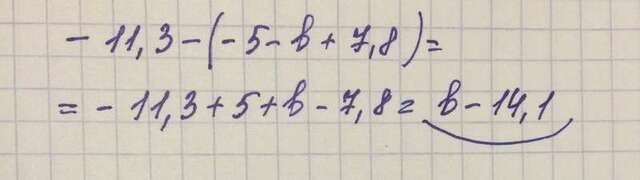 - 11,3 - (- 5 - b + 7,8) =
= - 11,3 + 5 + b - 7,8 = b - 14,1